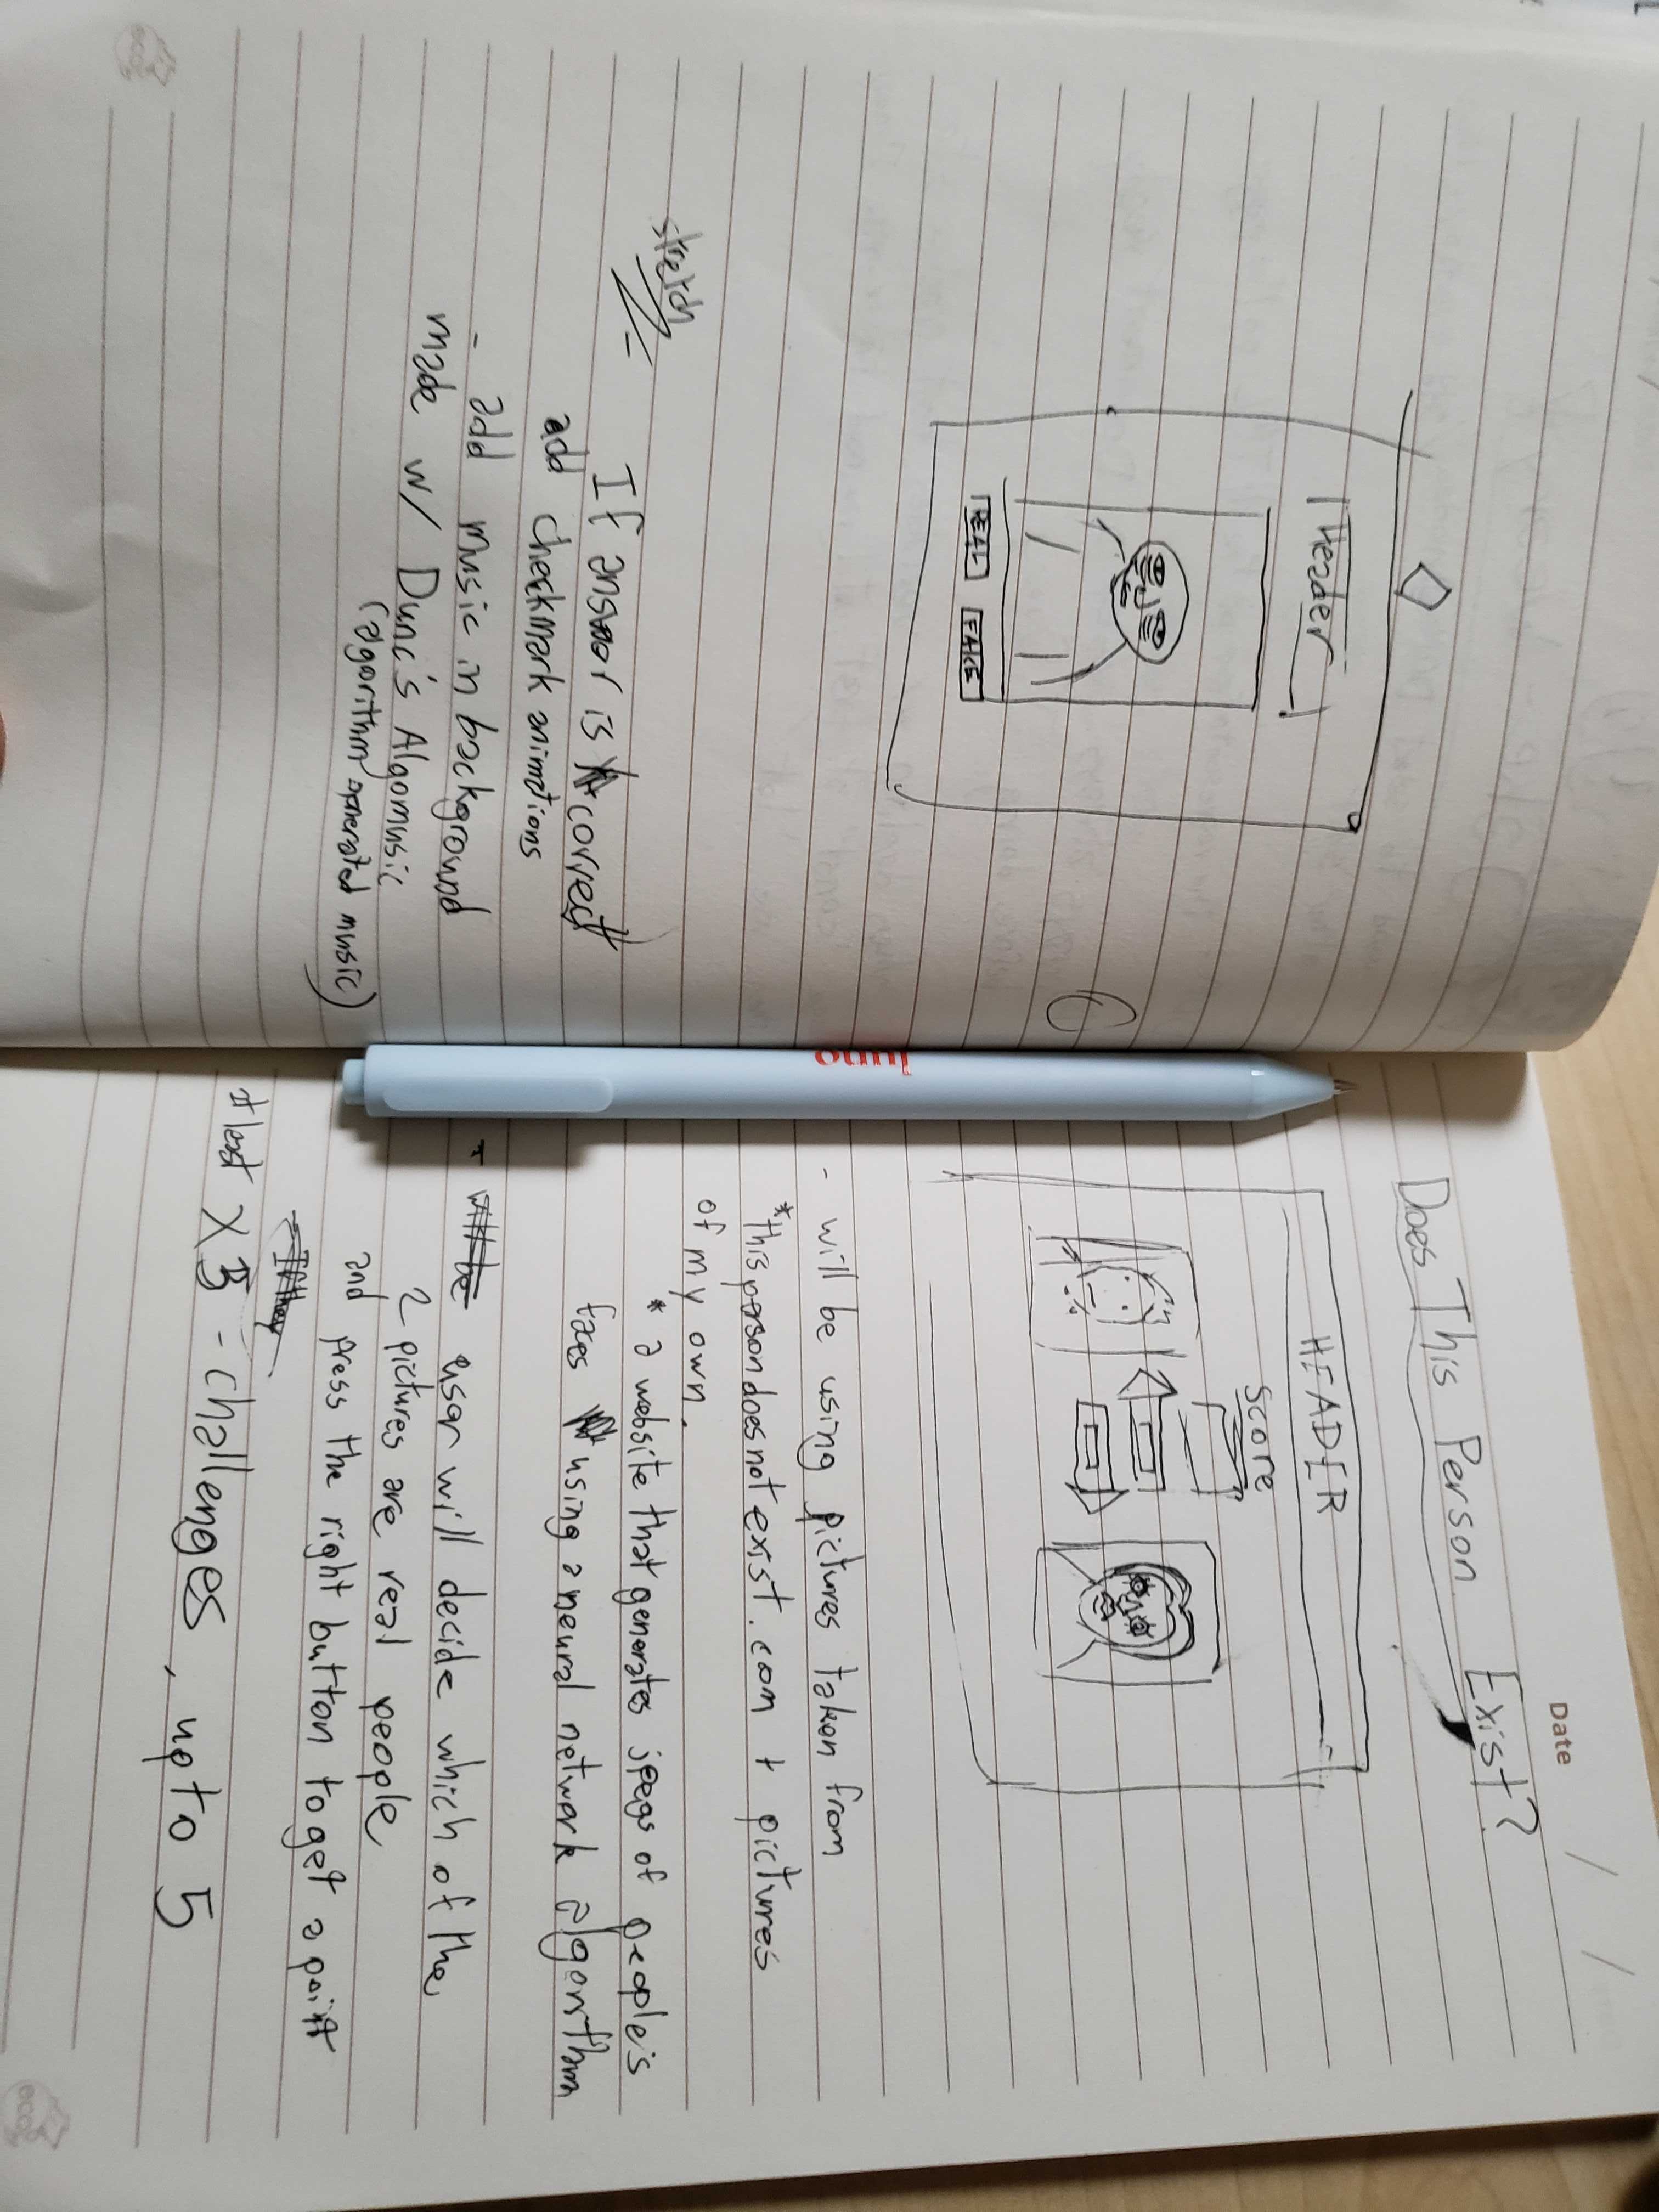 Header
REAL FAKE
stretch
If answer is correct
add checkmark animations
- add music in background
made w/ Dunc's Algomusic
(algorithm generated music)
eco
Date / /
Does This Person Exist?
HEADER
Score
- will be using pictures taken from
*thispersondoesnotexist.com + pictures
of my own.
* a website that generates of people's
faces using a neural network algorithm
- user will decide which of the
2 pictures are real people
and press the right button to get a point
at least x3 - challenges, up to 5
eco